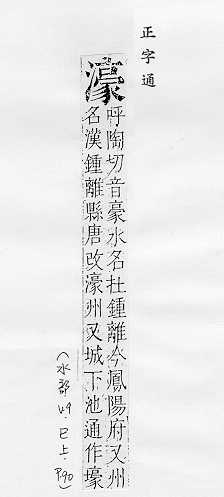 正字通
濠
呼陶切音豪水名在鍾離今鳳陽府又州
名漢鍾離縣唐改濠州又城下池通作壕
(水部 49. 巳上. P90)